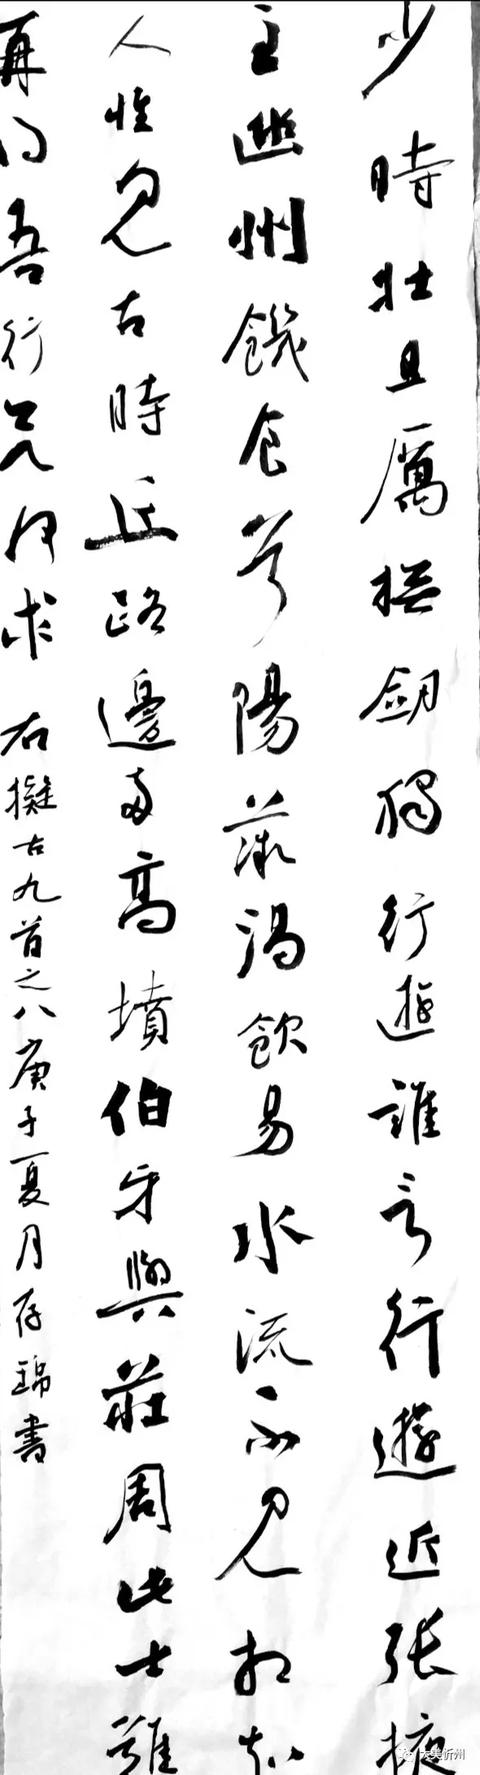 少時壯且厲撫劍獨行遊誰言行遊近張掖
至幽州饑食首陽薇渴飲易水流不見相知
人惟見古時丘路邊兩高墳伯牙與莊周此士難
再得吾行欲何求 右擬古九首之八庚子夏月存錦書
大美忻州